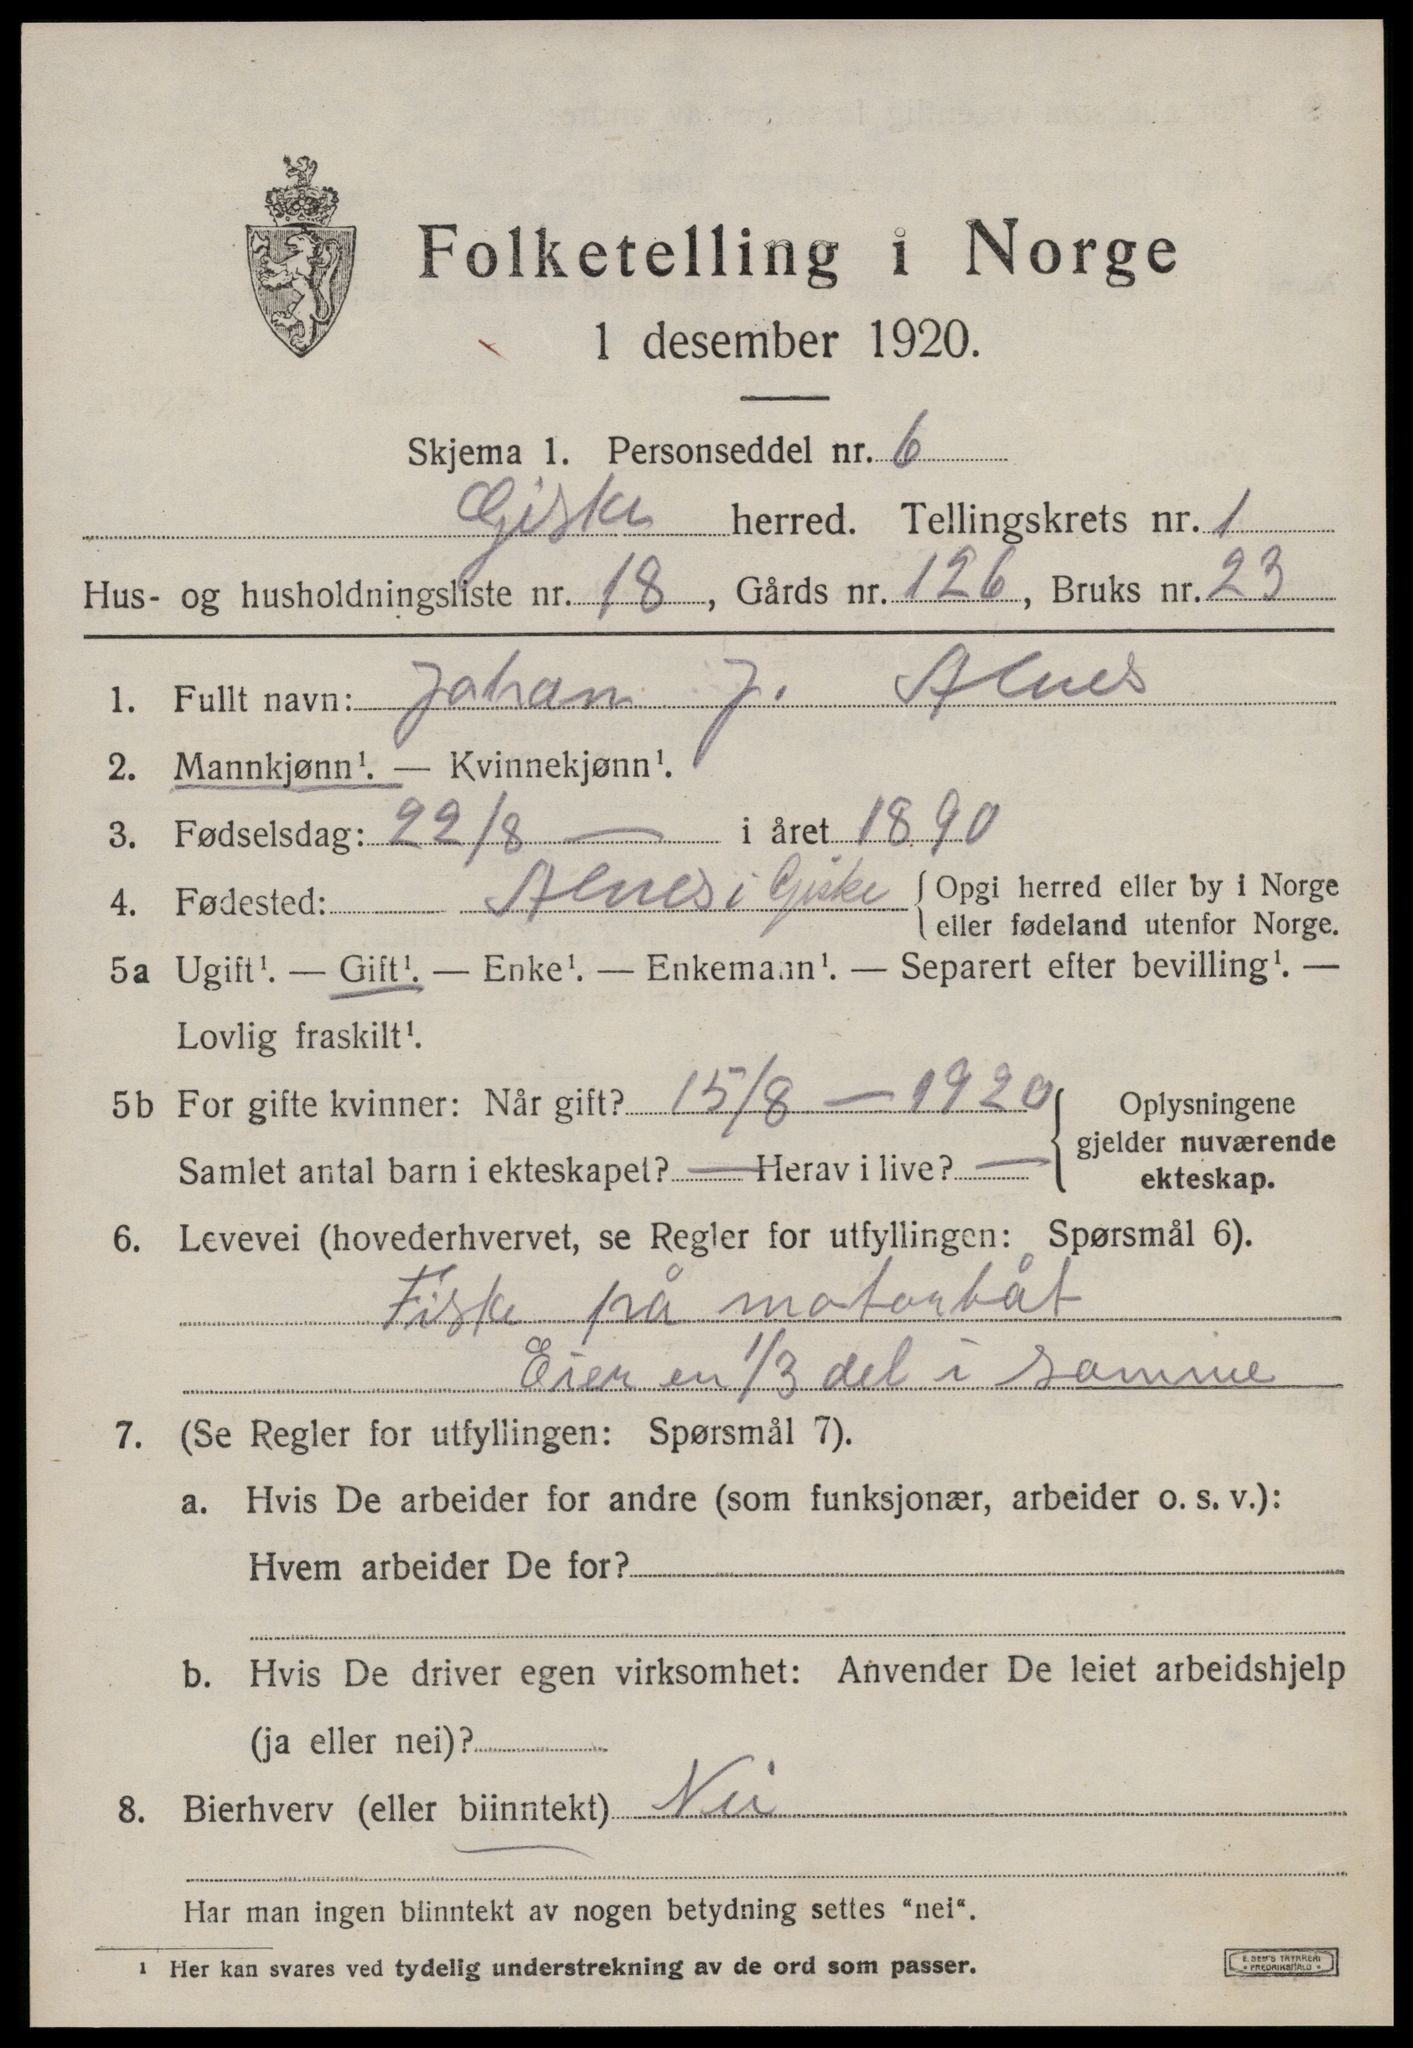 Folketelling i Norge
1 desember 1920.
Skjema 1. Personseddel nr. 6
Giske herred. Tellingskrets nr. 1
Hus- og husholdningsliste nr. 18, Gårds nr. 126, Bruks nr. 23
1. Fullt navn: Johan J. Alnes
2. Mannkjønn¹. — Kvinnekjønn¹.
3. Fødselsdag: 22/8 — i året 1890
4. Fødested: Alnes i Giske { Opgi herred eller by i Norge
eller fødeland utenfor Norge.
5a Ugift¹. — Gift¹. — Enke¹. — Enkemann¹. — Separert efter bevilling¹. —
Lovlig fraskilt¹.
5b For gifte kvinner: Når gift? 15/8 — 1920 } Oplysningene
gjelder nuværende
Samlet antal barn i ekteskapet? — Herav i live? —
ekteskap.
6. Levevei (hovederhvervet, se Regler for utfyllingen: Spørsmål 6).
Fiske på motorbåt
Eier en 1/3 del i samme
7. (Se Regler for utfyllingen: Spørsmål 7).
a. Hvis De arbeider for andre (som funksjonær, arbeider o. s. v.):
Hvem arbeider De for?
b. Hvis De driver egen virksomhet: Anvender De leiet arbeidshjelp
(ja eller nei)?
8. Bierhverv (eller biinntekt) Nei
Har man ingen biinntekt av nogen betydning settes “nei“.
¹ Her kan svares ved tydelig understrekning av de ord som passer.
E. SEM'S TRYKKERI
• FREDRIKSHALD •